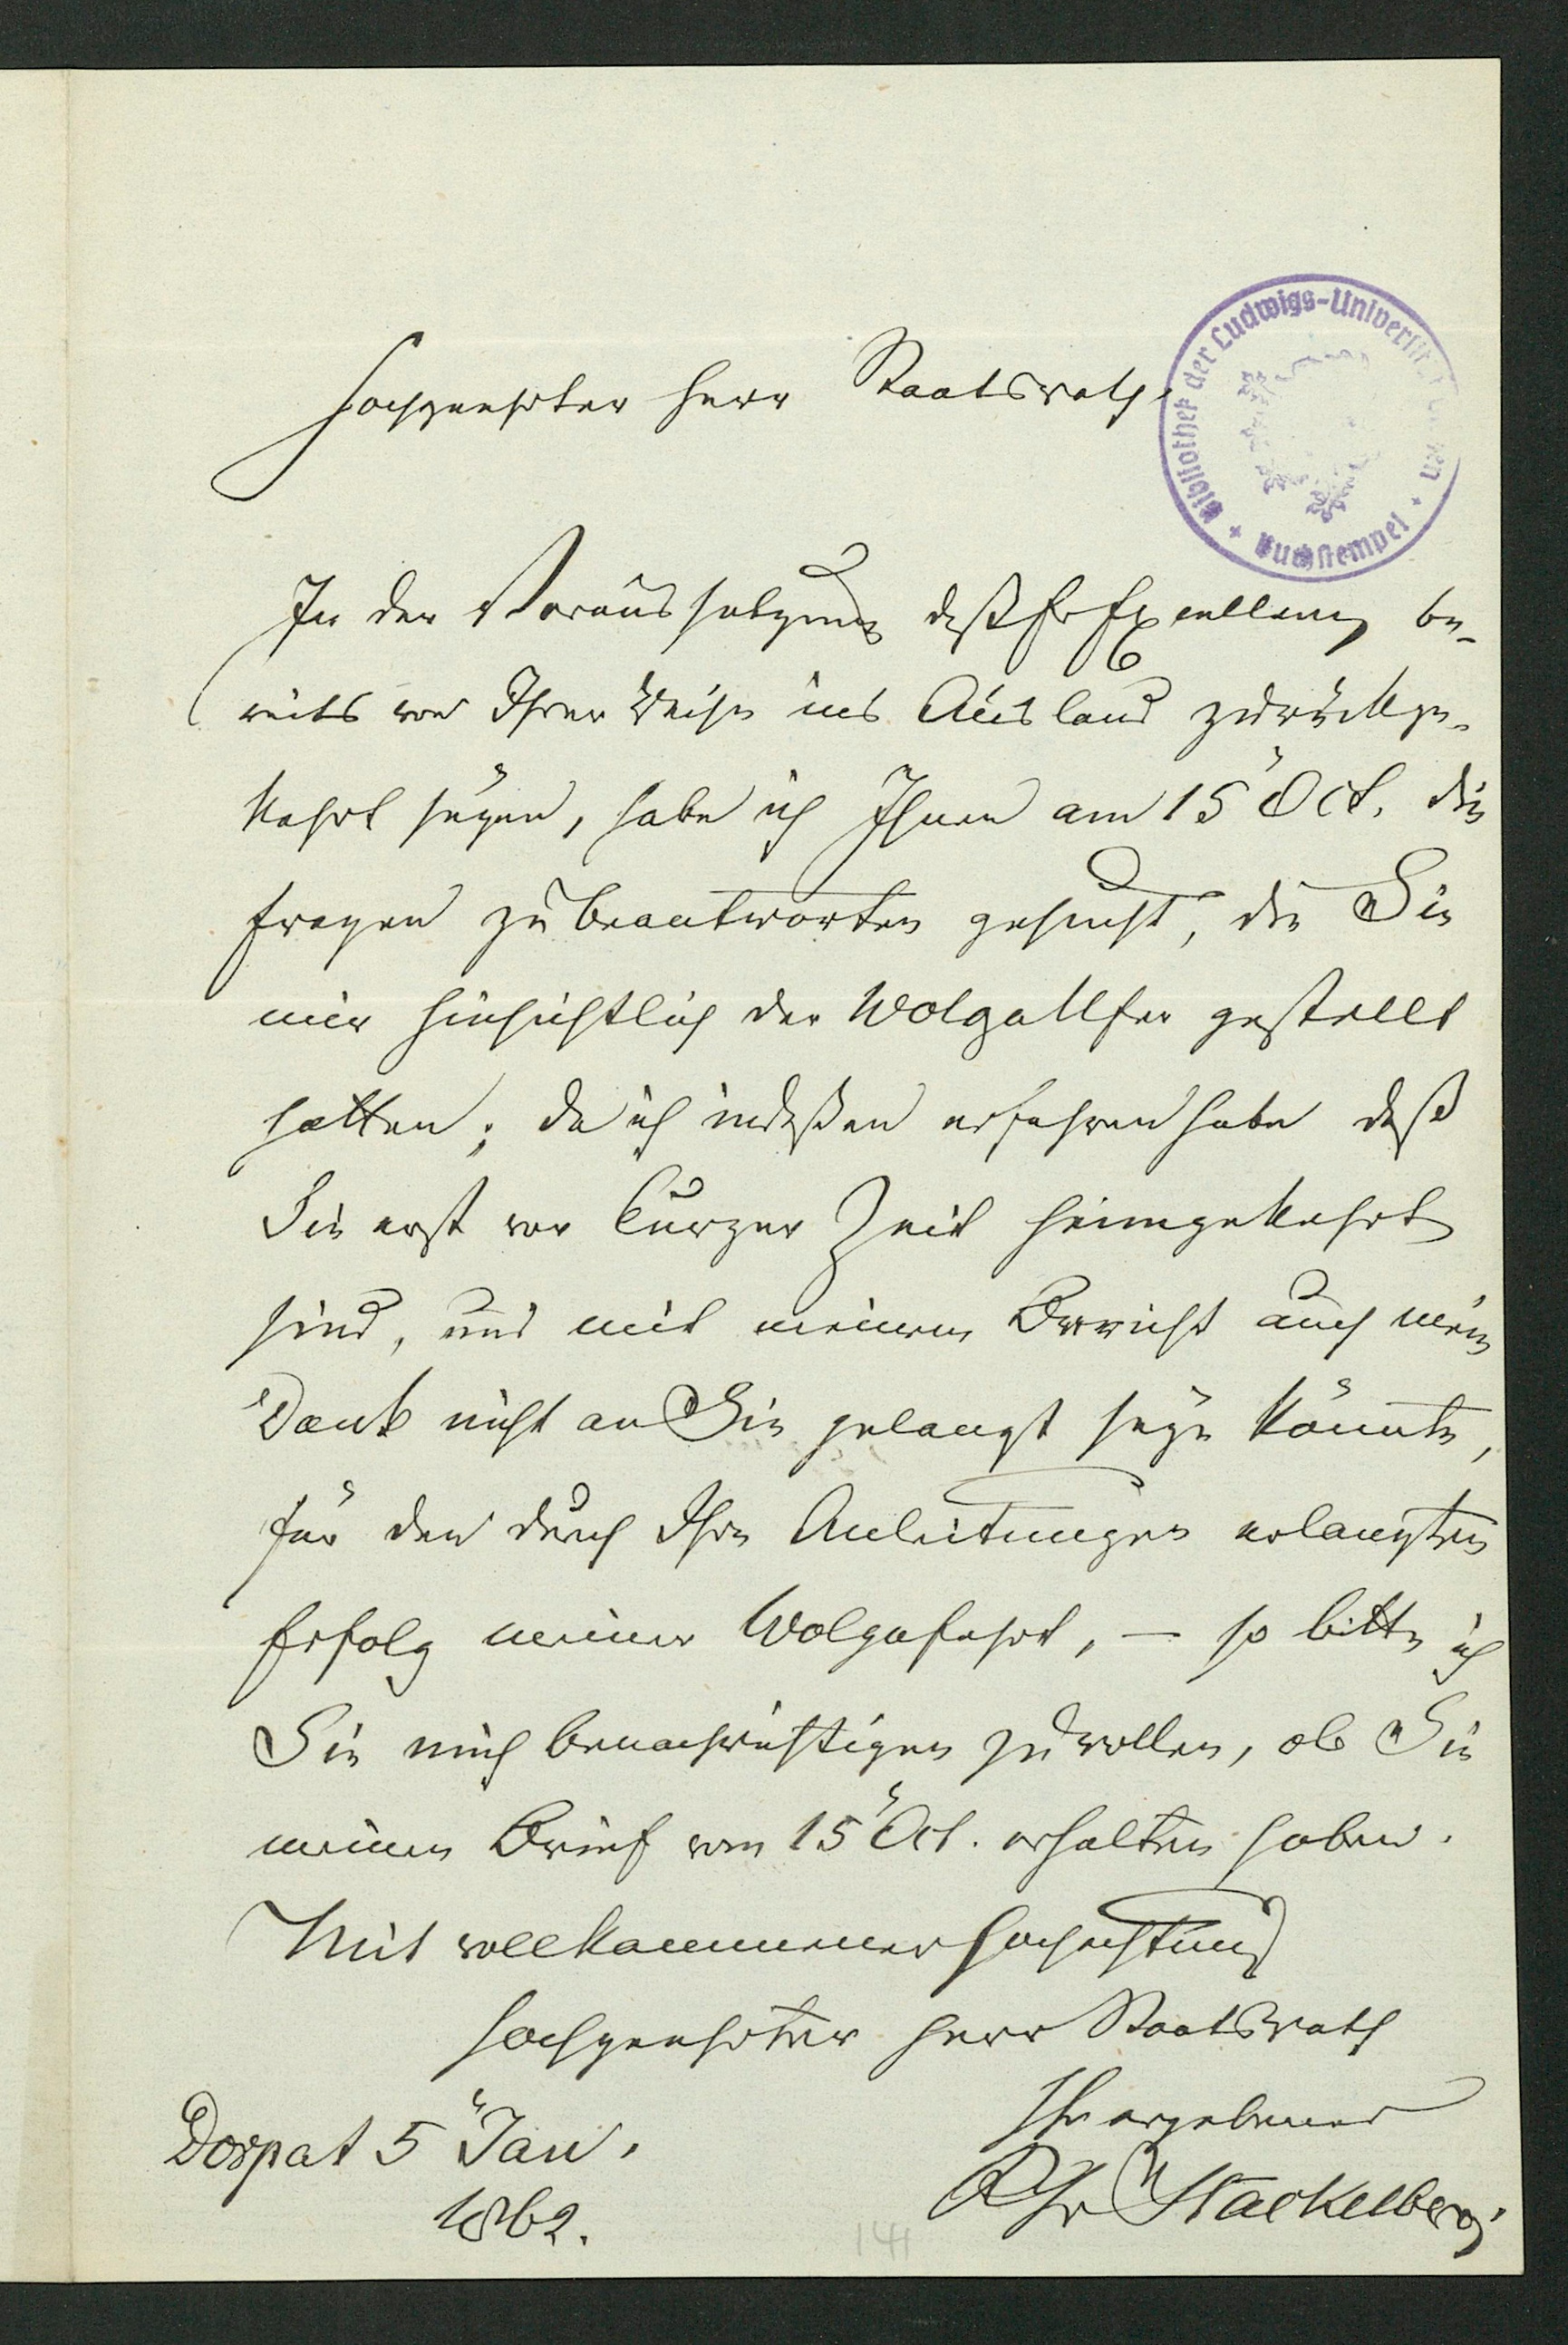 Hochgeehrter Herr Staatsrath.
Bibliothek der Ludwigs-Universität
Buchstempel
In der Voraussetzung daß Er Excellenz be-
reits von Ihrer Reise ins Ausland zurückge-
kehrt seyen, habe ich Ihnen am 15 Oct. die
Fragen zu beantworten gesucht, die Sie
mir hinsichtlich der Wolga Ufer gestellt
hatten; da ich indeßen erfahren habe daß
Sie erst vor Curzer Zeit heimgekehrt
sind, und mit meinem Bericht auch mein
Dank nicht an Sie gelangt seyn könnte,
für den durch Ihre Anleitungen erlangten
Erfolg meiner Wolgafahrt, — so bitte ich
Sie mich benachrichtigen zu wollen, ob Sie
meinen Brief vom 15 Oct. erhalten haben.
Mit vollkommener Hochachtung
Hochgeehrter Herr Staatsrath
Ihr ergebener
Stackelberg.
Dorpat 5 Jan.
1862.
141